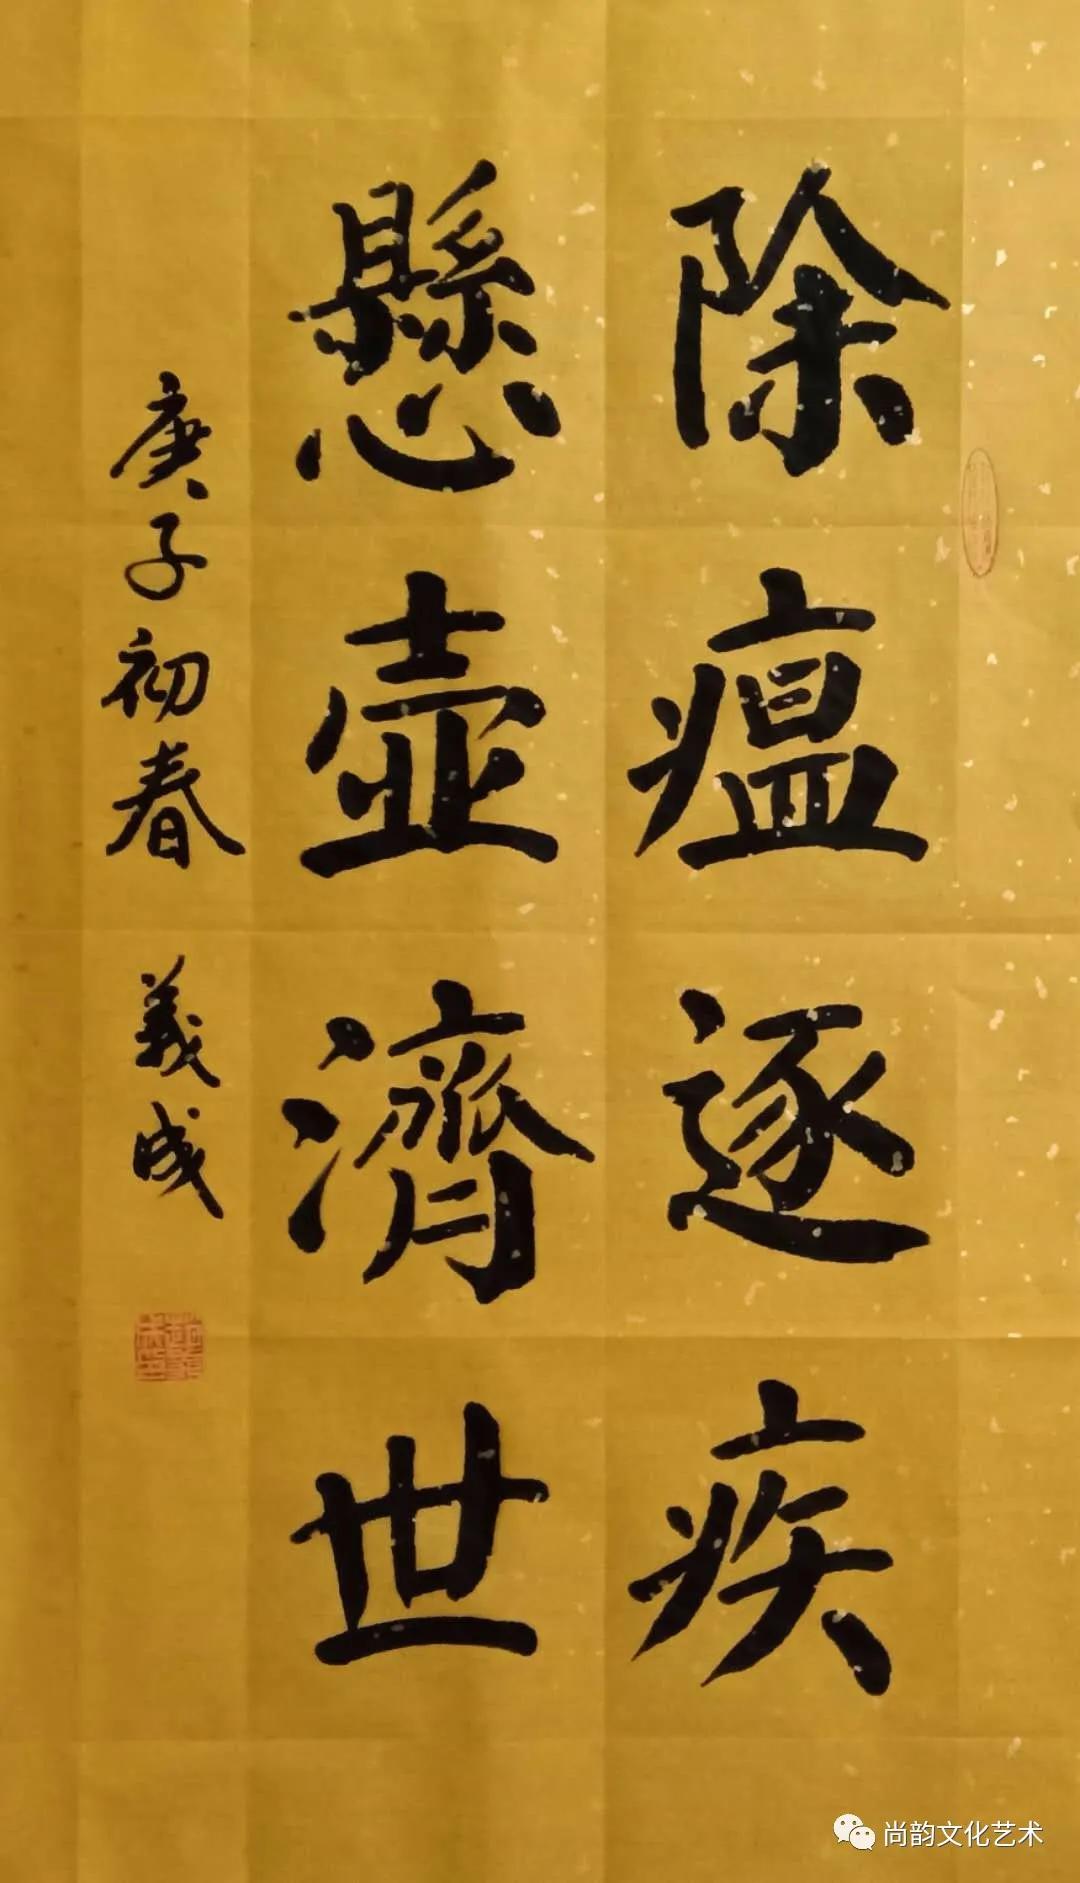 除瘟逐疾
懸壺濟世
庚子初春 義成
尚韵文化艺术